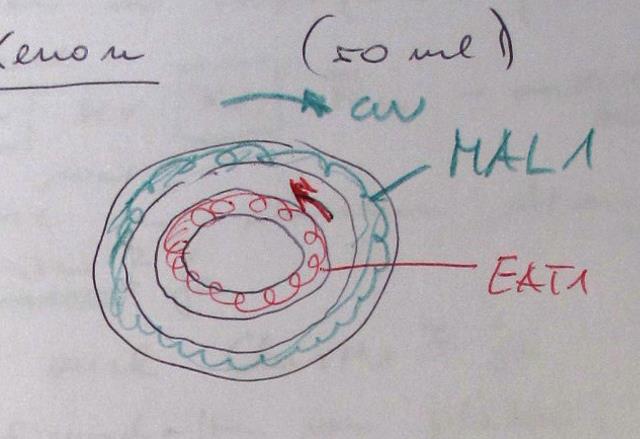 Xenon (50 ml)
cw
MAL1
EAT1